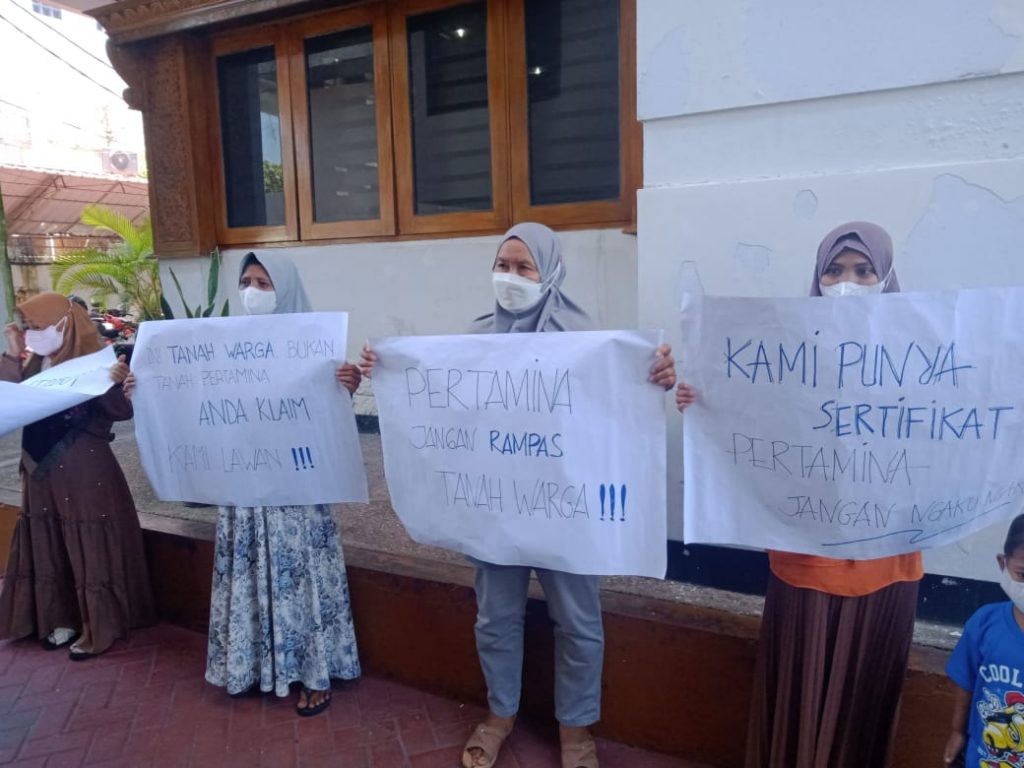 INI TANAH WARGA, BUKAN
TANAH PERTAMINA
ANDA KLAIM
KAMI LAWAN !!!
PERTAMINA
JANGAN RAMPAS
TANAH WARGA !!!
KAMI PUNYA
SERTIFIKAT
PERTAMINA
JANGAN NGAKU
COOL